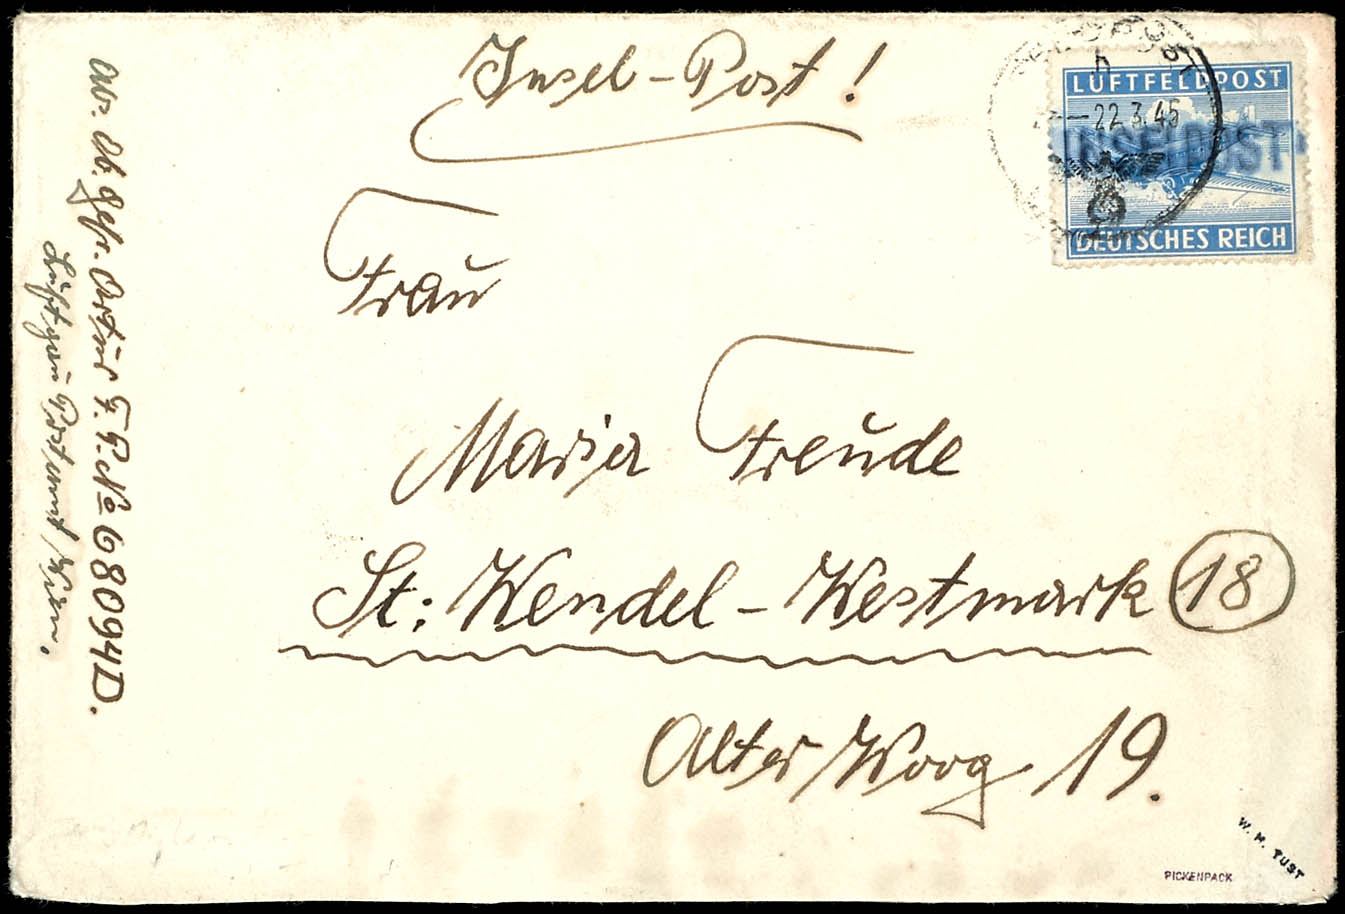 Insel-Post!
FELDPOST
h
LUFTFELDPOST
22.3.45
INSELPOST
DEUTSCHES REICH
Frau
Maria Freude
St. Wendel-Westmark 18
Alter Woog 19.
Abs. Ob. Gefr. Artur F. P. No 68094D.
Luftgau Postamt Wien.
W. M. TUST
PICKENPACK